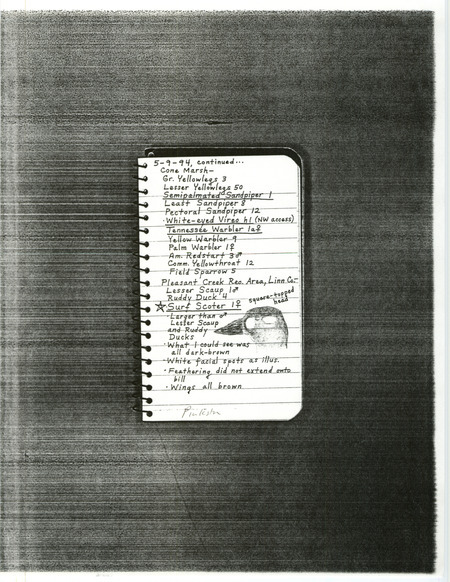 5-9-94, continued...
Cone Marsh-
Gr. Yellowlegs 3
Lesser Yellowlegs 50
Semipalmated Sandpiper 1
Least Sandpiper 8
Pectoral Sandpiper 12
White-eyed Vireo h1 (NW access)
Tennessee Warbler 1a♀
Yellow Warbler 9
Palm Warbler 1♀
Am. Redstart 3♂
Comm. Yellowthroat 12
Field Sparrow 5
Pleasant Creek Rec. Area, Linn Co.-
Lesser Scaup 1♂
Ruddy Duck 4
☆Surf Scoter 1♀
square-topped
head
·Larger than ♂
Lesser Scaup
and Ruddy
Ducks
·What I could see was
all dark-brown
·White facial spots as illus.
·Feathering did not extend onto
bill
·Wings all brown